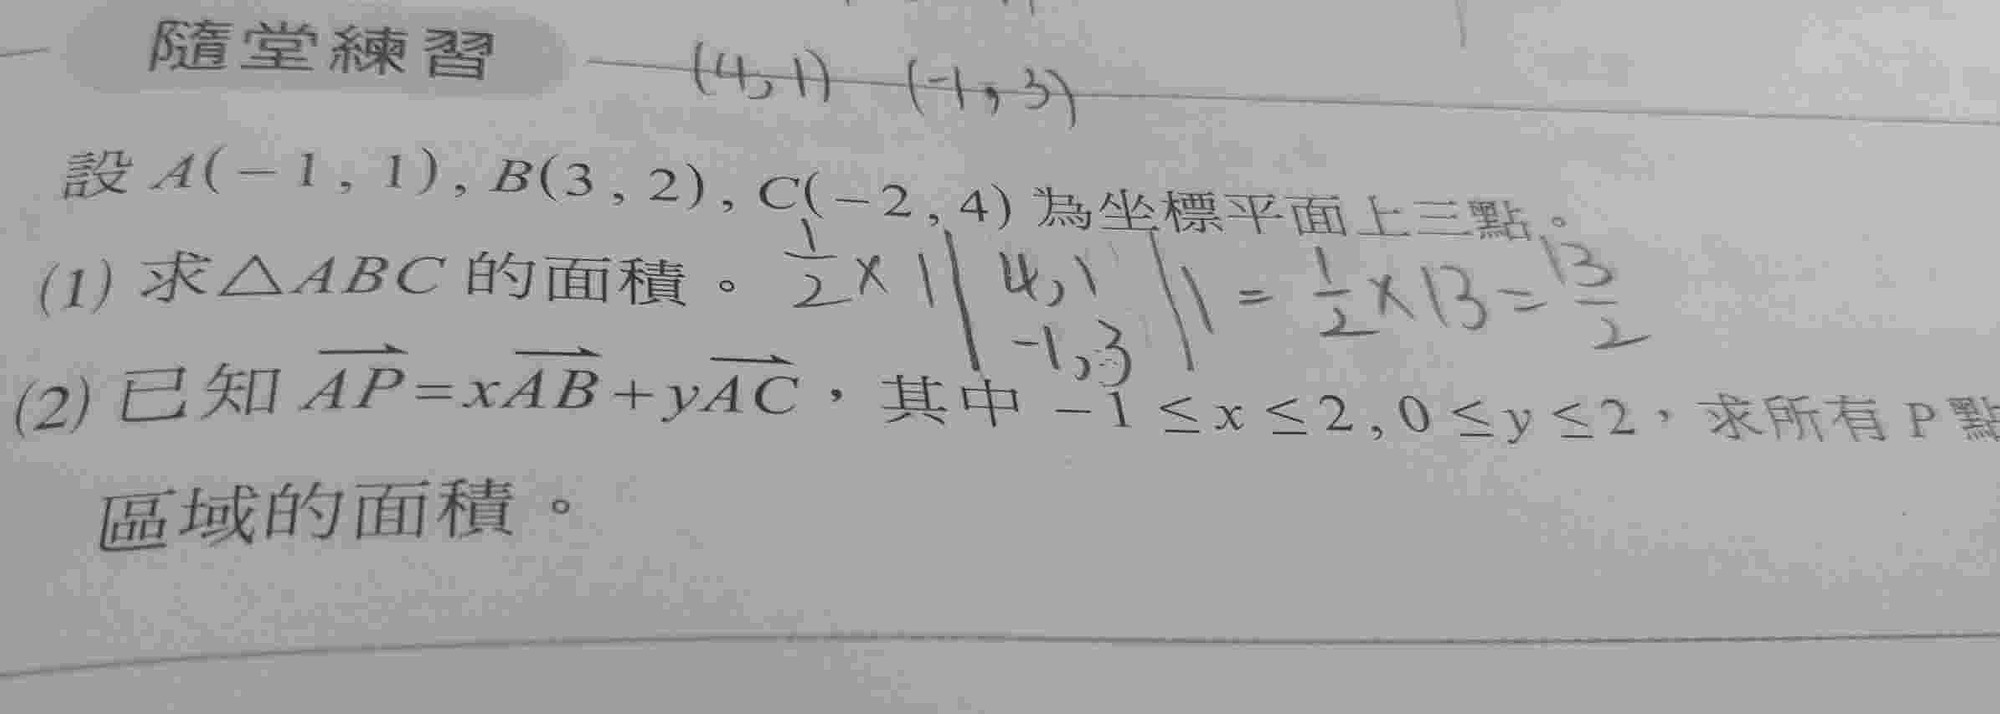 隨堂練習 (4,1) (-1,3)
設 A(-1,1), B(3,2), C(-2,4) 為坐標平面上三點。
(1) 求△ABC 的面積。 1/2 × || 4,1 -1,3 || = 1/2 × 13 = 13/2
(2) 已知 AP = xAB + yAC,其中 -1 ≤ x ≤ 2, 0 ≤ y ≤ 2,求所有 P 點
區域的面積。